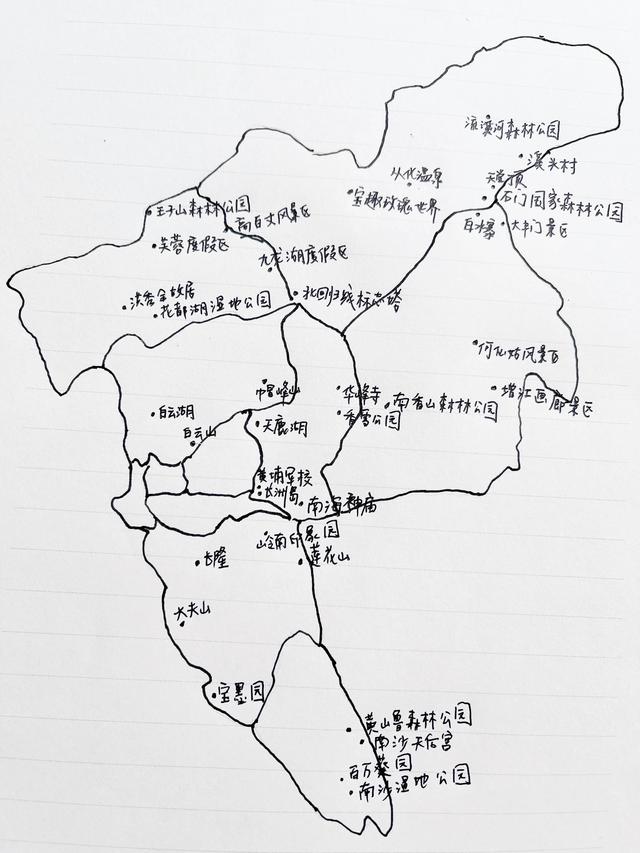 流溪河森林公园
溪头村
从化温泉
天堂顶
石门国家森林公园
宝趣玫瑰世界
王子山森林公园
高百丈风景区
白水寨
大丰门景区
芙蓉度假区
九龙湖度假区
洪秀全故居
北回归线标志塔
花都湖湿地公园
何仙姑风景区
帽峰山
华峰寺
增江画廊景区
南香山森林公园
白云湖
天鹿湖
香雪公园
白云山
黄埔军校
长洲岛
南海神庙
岭南印象园
长隆
莲花山
大夫山
宝墨园
黄山鲁森林公园
南沙天后宫
百万葵园
南沙湿地公园